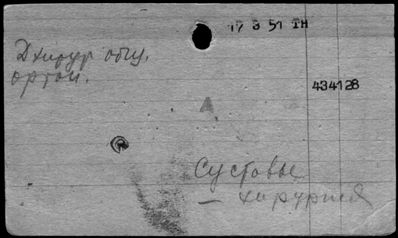 17 3 51 TH
Д хирур общ.
ортоп.
434128
А
Суставы
— хирургия